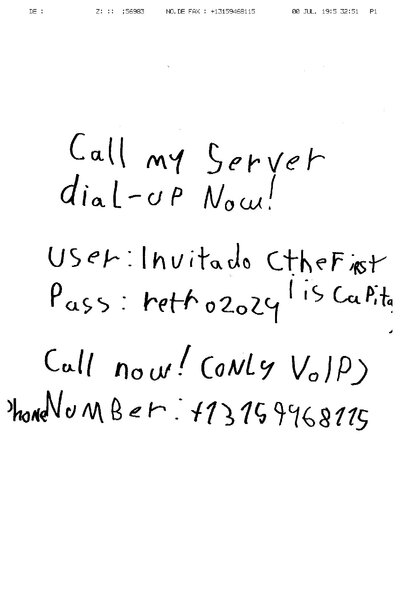 DE : Z: :: :56983 NO.DE FAX : +13159468115 00 JUL. 19:5 32:51 P1
Call my Server
dial-up Now!
User: Invitado (the First
Pass: retro2024 I is Capita
Call now! (ONLY VoIP)
Phone Number: +13159468115